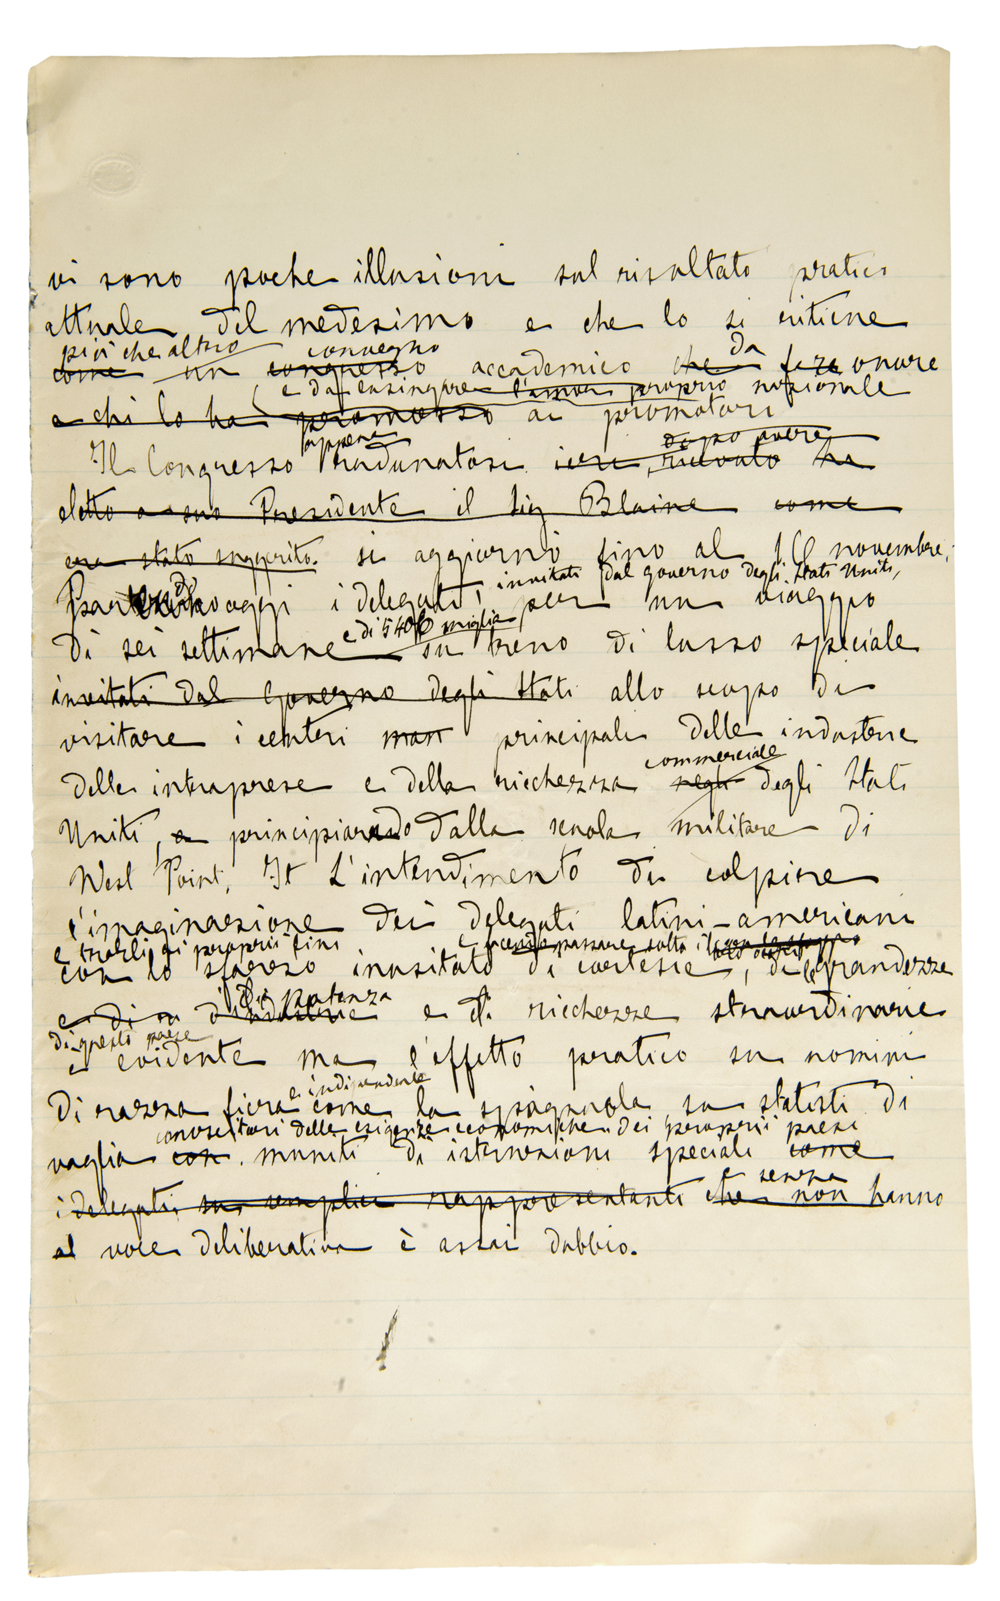 vi sono poche illusioni sul risultato pratico
attuale del medesimo e che lo si ritiene
più che altro convegno
come un congresso accademico che da fare onore
e da lusingare l'amor proprio nazionale
e chi lo ha promosso ai promotori
appena dopo avere
Il Congresso radunatosi ieri, ricevuto ha
eletto a suo Presidente il Sig Blaine come
era stato suggerito. si aggiornò fino al 18 novembre.
di invitati dal governo degli Stati Uniti,
oggi i delegati, per un viaggio
e di 5400 miglia
di sei settimane su treno di lusso speciale
invitati dal Governo degli Stati allo scopo di
visitare i centri man principali delle industrie
commerciale
delle intraprese e della ricchezza negli degli Stati
Uniti, e principiando dalla scuola militare di
West Point. It L'intendimento di colpire
l'imaginazione dei delegati latini-americani
e trarli ai proprii fini e passare sotto il
con lo sfarzo inusitato di cortesie, di grandezze
di potenza
e di su d'industrie e di ricchezze straordinarie
di questo paese
è evidente ma l'effetto pratico su uomini
e indipendente
di razza fiera come la spagnuola, su statisti di
conoscitori delle esigenze economiche dei proprii paesi
vaglia con muniti di istruzioni speciali come
e senza
i delegati, su semplici rappresentanti che non hanno
al voce deliberativa è assai dubbio.